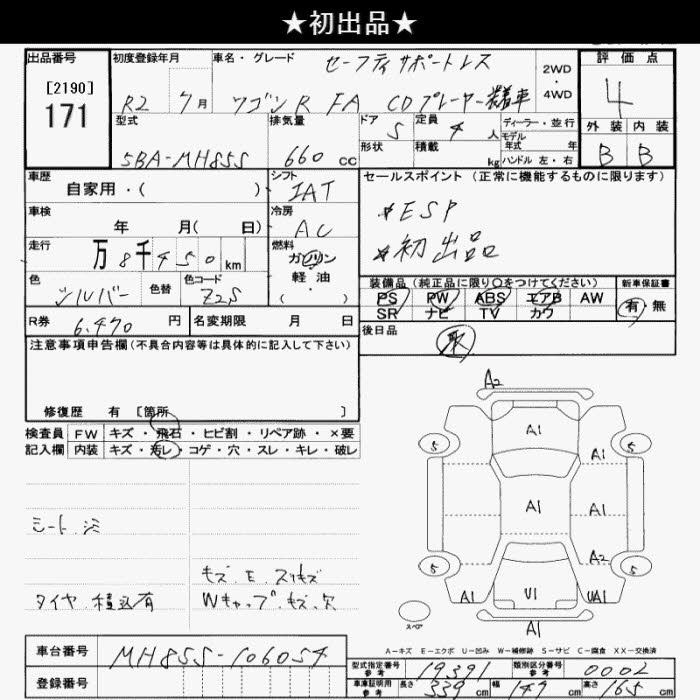 ★初出品★
出品番号 初度登録年月 車名・グレード セーフティサポートレス 2WD・4WD 評価点
[2190] 171 R2 7月 ワゴンR FA CDプレーヤー装着車 4
型式 排気量 ドア 5 定員 4人 ディーラー・並行 外装 内装
5BA-MH85S 660cc 形状 積載 kg モデル年式 年 ハンドル 左・右 B B
車歴 シフト セールスポイント (正常に機能するものに限ります)
自家用・( ) IAT
車検 冷房 *ESP
年 月( 日) AC *初出品
走行 燃料
万8千450km ガソリン 軽油 ・( )
色 色替 色コード 装備品 (純正品に限り○をつけてください) 新車保証書
シルバー Z2S PS PW ABS エアB AW 有・無
SR ナビ TV カワ
R券 6,470円 名変期限 月 日 後日品
注意事項申告欄(不具合内容等は具体的に記入して下さい)
修復歴 有 [箇所 ]
検査員 FW キズ・飛石・ヒビ割・リペア跡・×要
記入欄 内装 キズ・汚レ・コゲ・穴・スレ・キレ・破レ
シート・シミ
キズ・E・スリキズ
タイヤ・積込有 Wキャップ・キズ・穴
A2
A1
5 5
A1
A1 A1
A2
5 5
A1 U1 UA1
スペア
A1
A-キズ E-エクボ U-凹み W-補修跡 S-サビ C-腐食 XX-交換済
車台番号 MH85S-106054 型式指定番号 参考 19391 類別区分番号 参考 0002
登録番号 車庫証明用 参考 長さ 339cm 幅 147cm 高さ 165cm